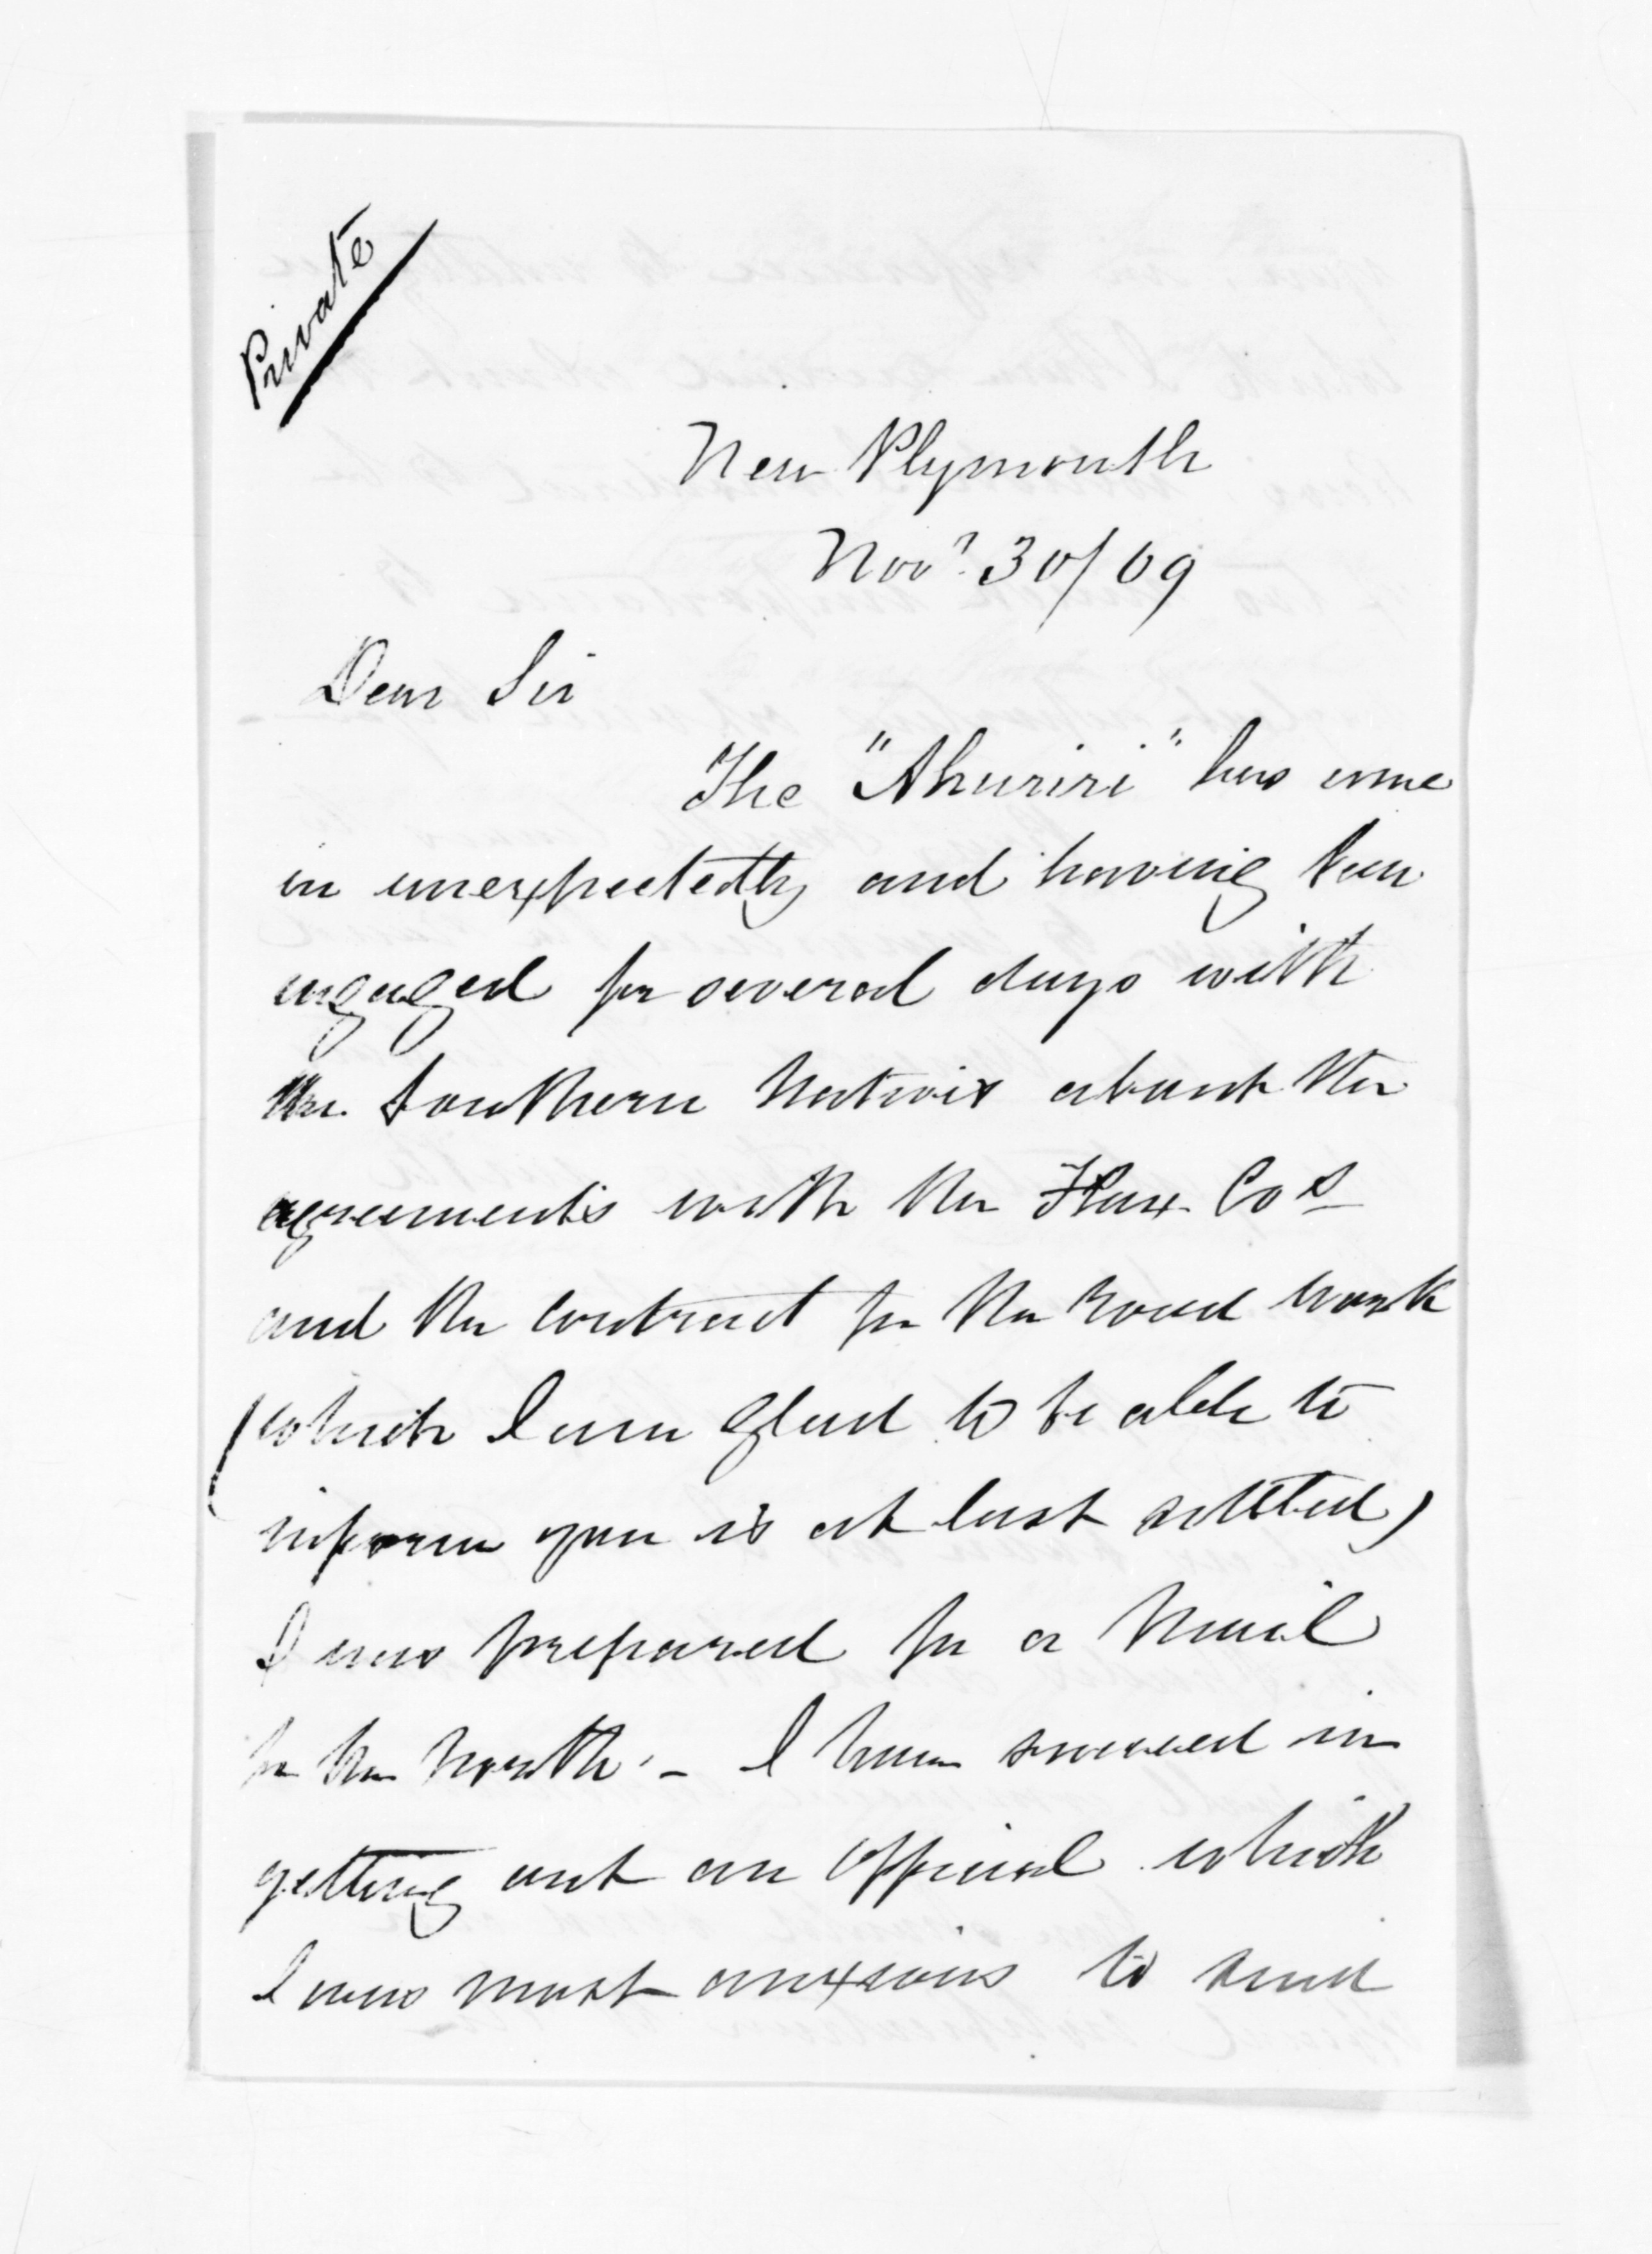 Private
New Plymouth
Novr 30/69
Dear Sir
The "Ahuriri" has come
in unexpectedly and having been
engaged for several days with
the Southern Natives about the
agreements with the Flax Cos
and the contract for the road work
(which I am glad to be able to
inform you is at last settled)
I was prepared for a Mail
for the North. - I have succeed in
getting out an official which
I was most anxious to send